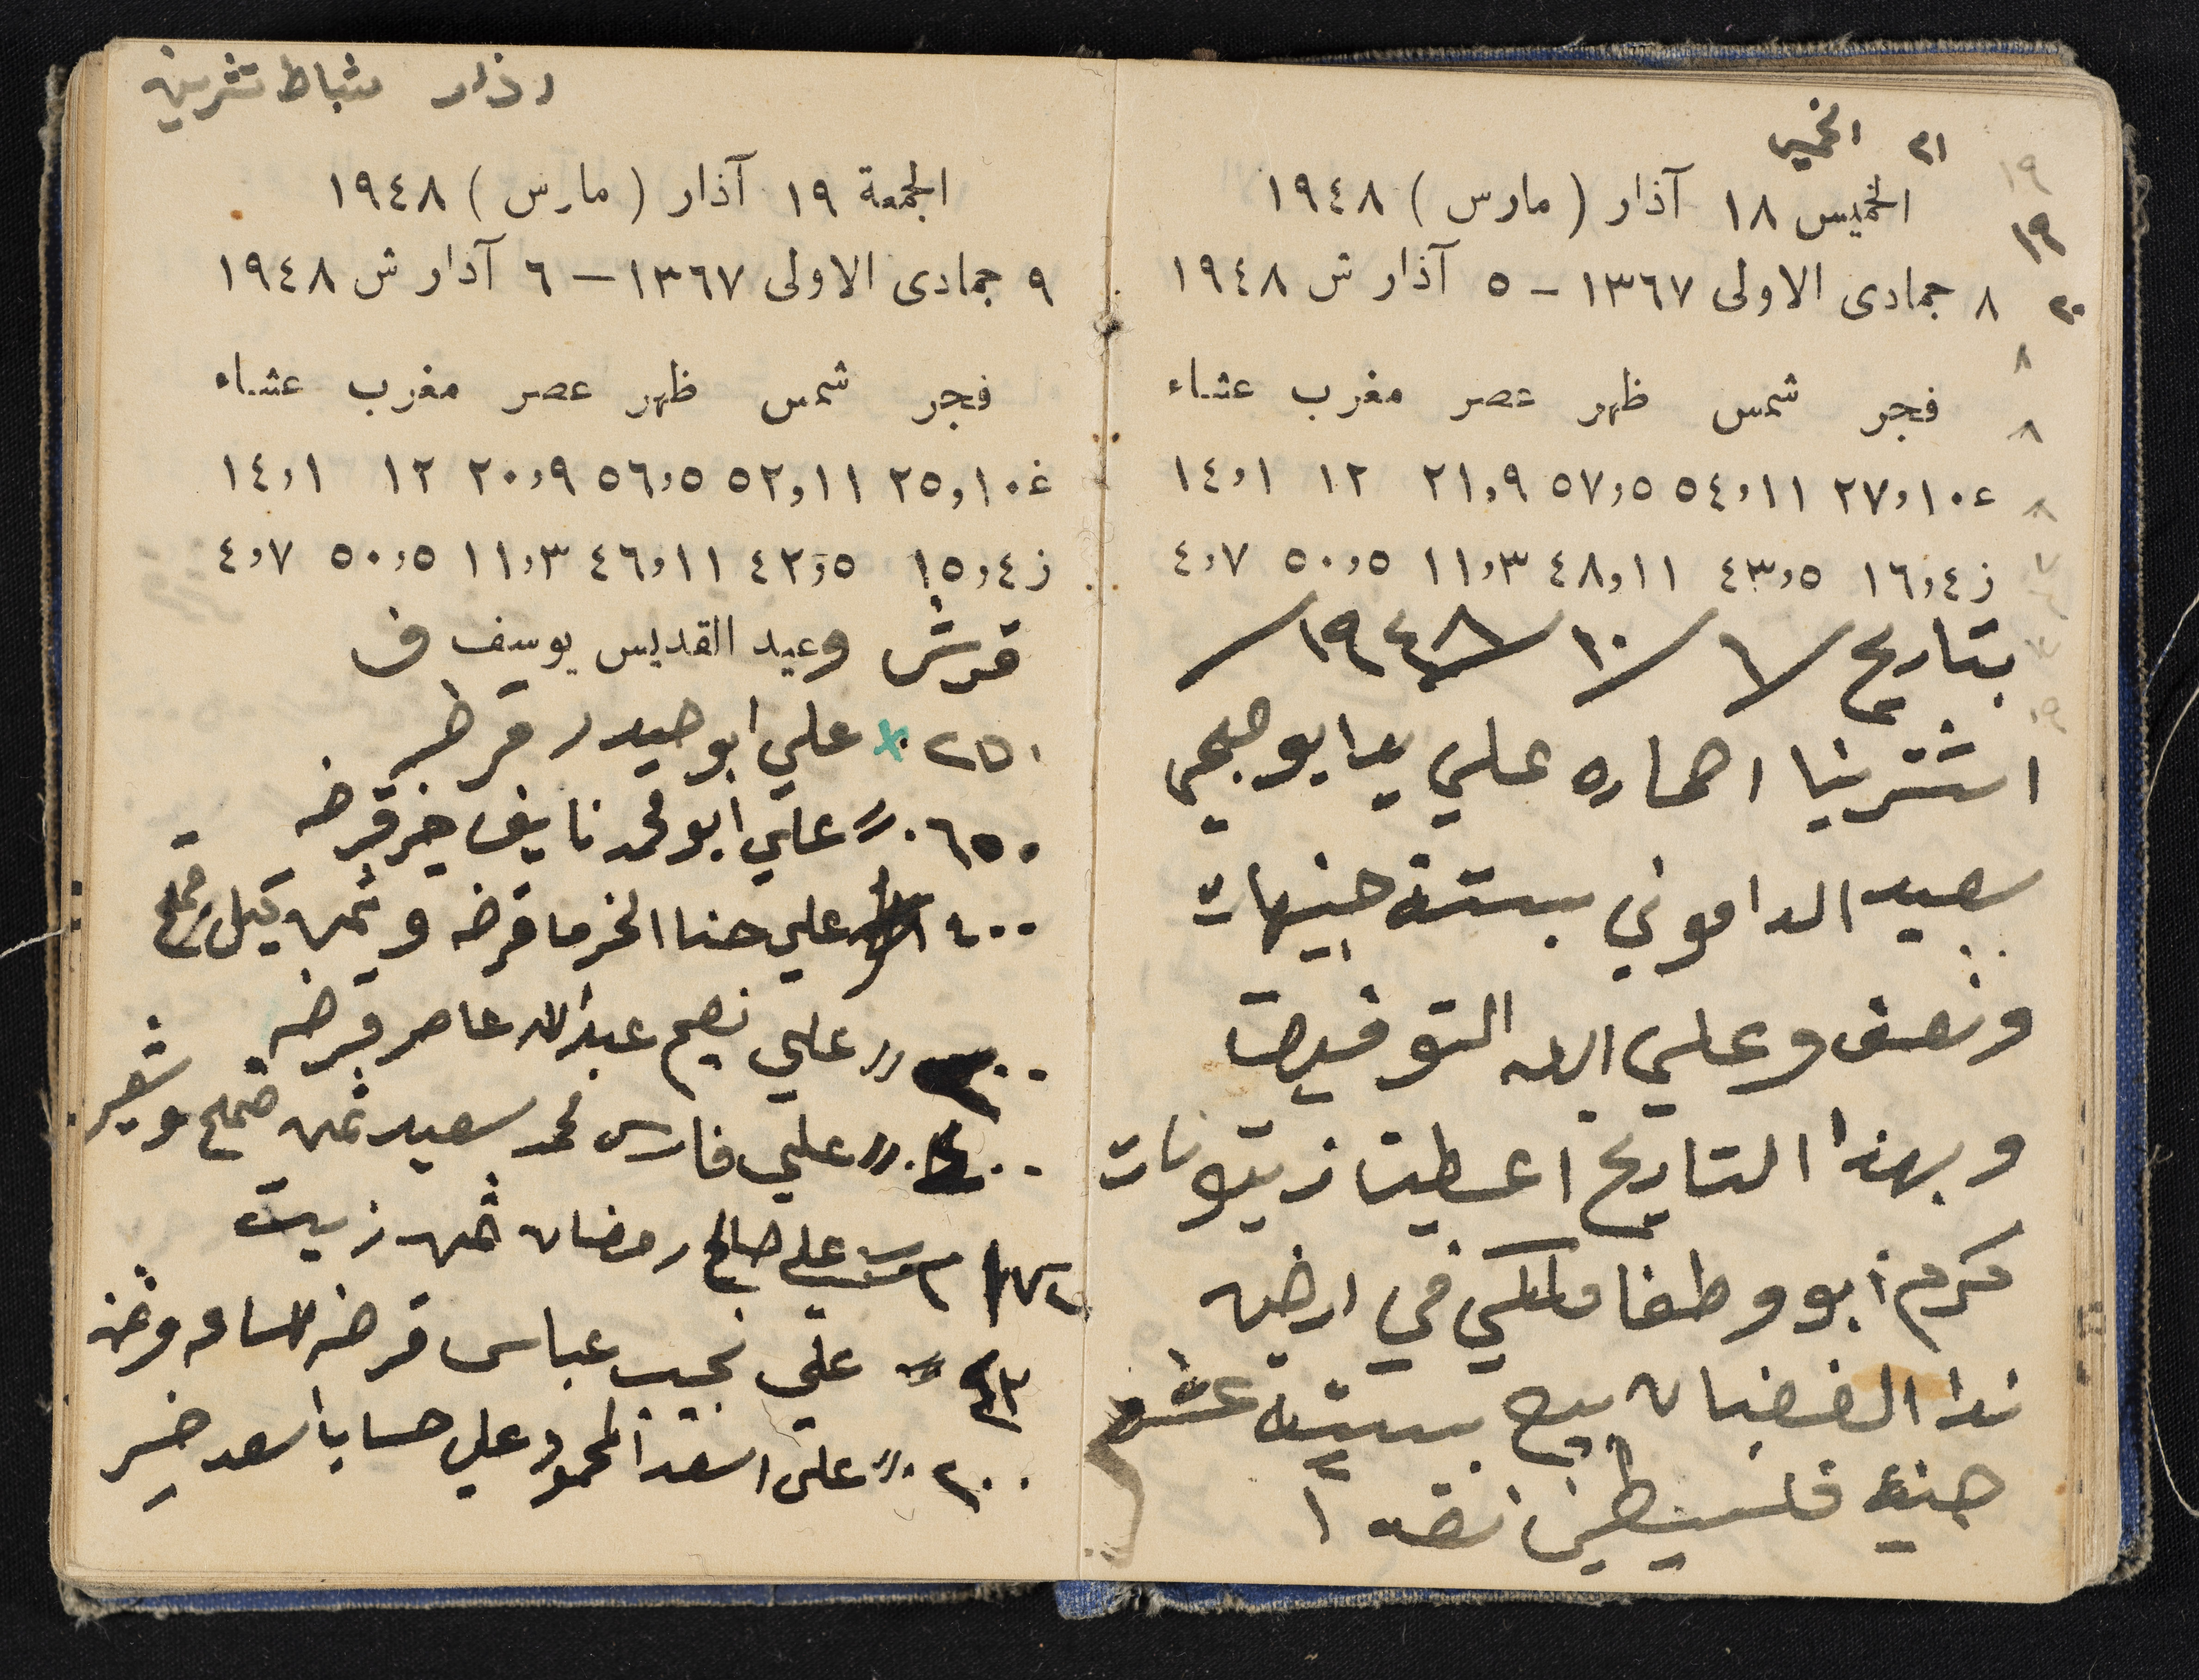 ٢١ الخميس
الخميس ١٨ آذار (مارس) ١٩٤٨
٨ جمادى الاولى ١٣٦٧ – ٥ آذار ش ١٩٤٨
فجر شمس ظهر عصر مغرب عشاء
غ ١٠,٢٧ ١١,٥٤ ٥,٥٧ ٩,٢١ ١٢ ١,١٤
ز ٤,١٦ ٥,٤٣ ١١,٤٨ ٣,١١ ٥,٥٠ ٧,٤
بتاريخ ٦/١٠/١٩٤٨/
اشترينا احماره علي يد ابو صبحي
سعيد الداموني بستة جنيهات
ونصف وعلي الله التوفيق
وبهذا التاريخ اعطينا زيتونات
كرم ابو وطفا ملكي في ارض
ندا الغضبان بيع بستة عشر
جنيه فلسطيني نقداً
١٩
١٩
٢٠
٨
٨
٨
٧
اذار شباط تشرين
الجمعة ١٩ آذار (مارس) ١٩٤٨
٩ جمادى الاولى ١٣٦٧ – ٦ آذار ش ١٩٤٨
فجر شمس ظهر عصر مغرب عشاء
غ ١٠,٢٥ ١١,٥٢ ٥,٥٦ ٩,٢٠ ١٢ ١,١٤
ز ٤,١٥ ٥,٤٢ ١١,٤٦ ٣,١١ ٥,٥٠ ٧,٤
قرش وعيد القديس يوسف ف
٢٥٠ × علي ابو حيدر قرض
٦٥٠ " علي ابو محمد نايف خير قرضه
٤٠٠ علي حنا الخرما قرضه وثمن كيل قمح
٣٠٠ " علي نصح عبدالله عامر قرضه
٤٠٠ " علي فارس محمد سعيد ثمن قمح وشعير
علي صالح رمضان ثمن زيت
علي نجيب عباس قرضه وثمن
٢٠٠ " على اسعد المحمود علي حساب اسعد خير